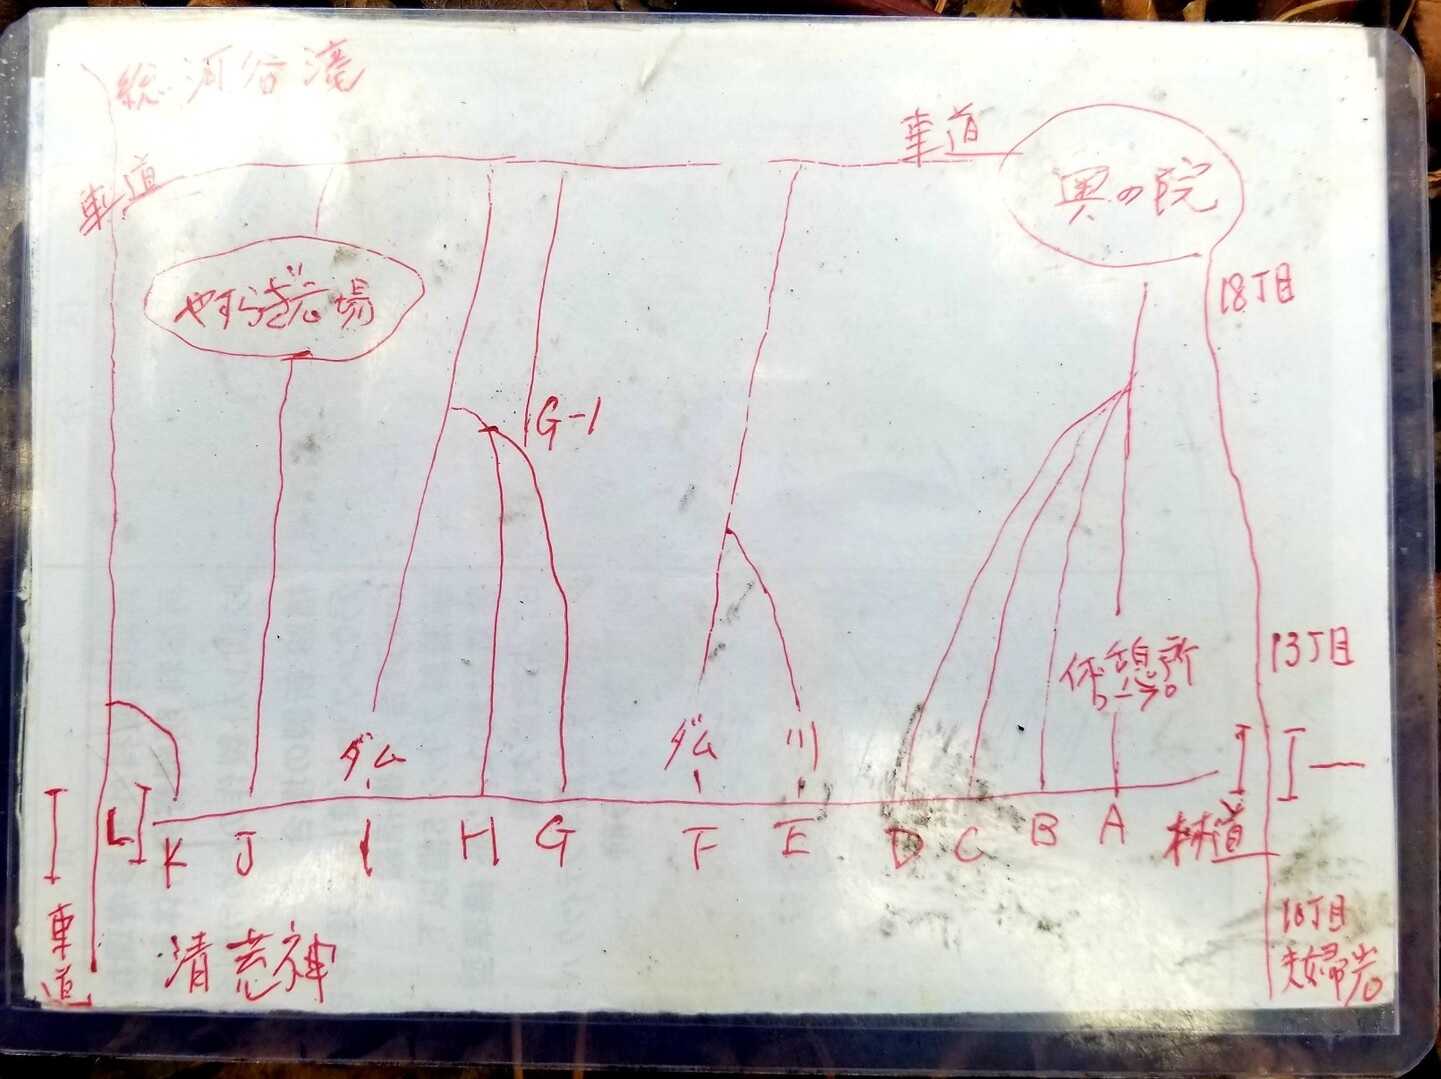 総河谷滝
車道
車道
奥の院
18丁目
やすらぎ広場
G-1
13丁目
休憩所
ダム
ダム
川
L
K
J
I
H
G
F
E
D
C
B
A
林道
車道
清荒神
10丁目
夫婦岩